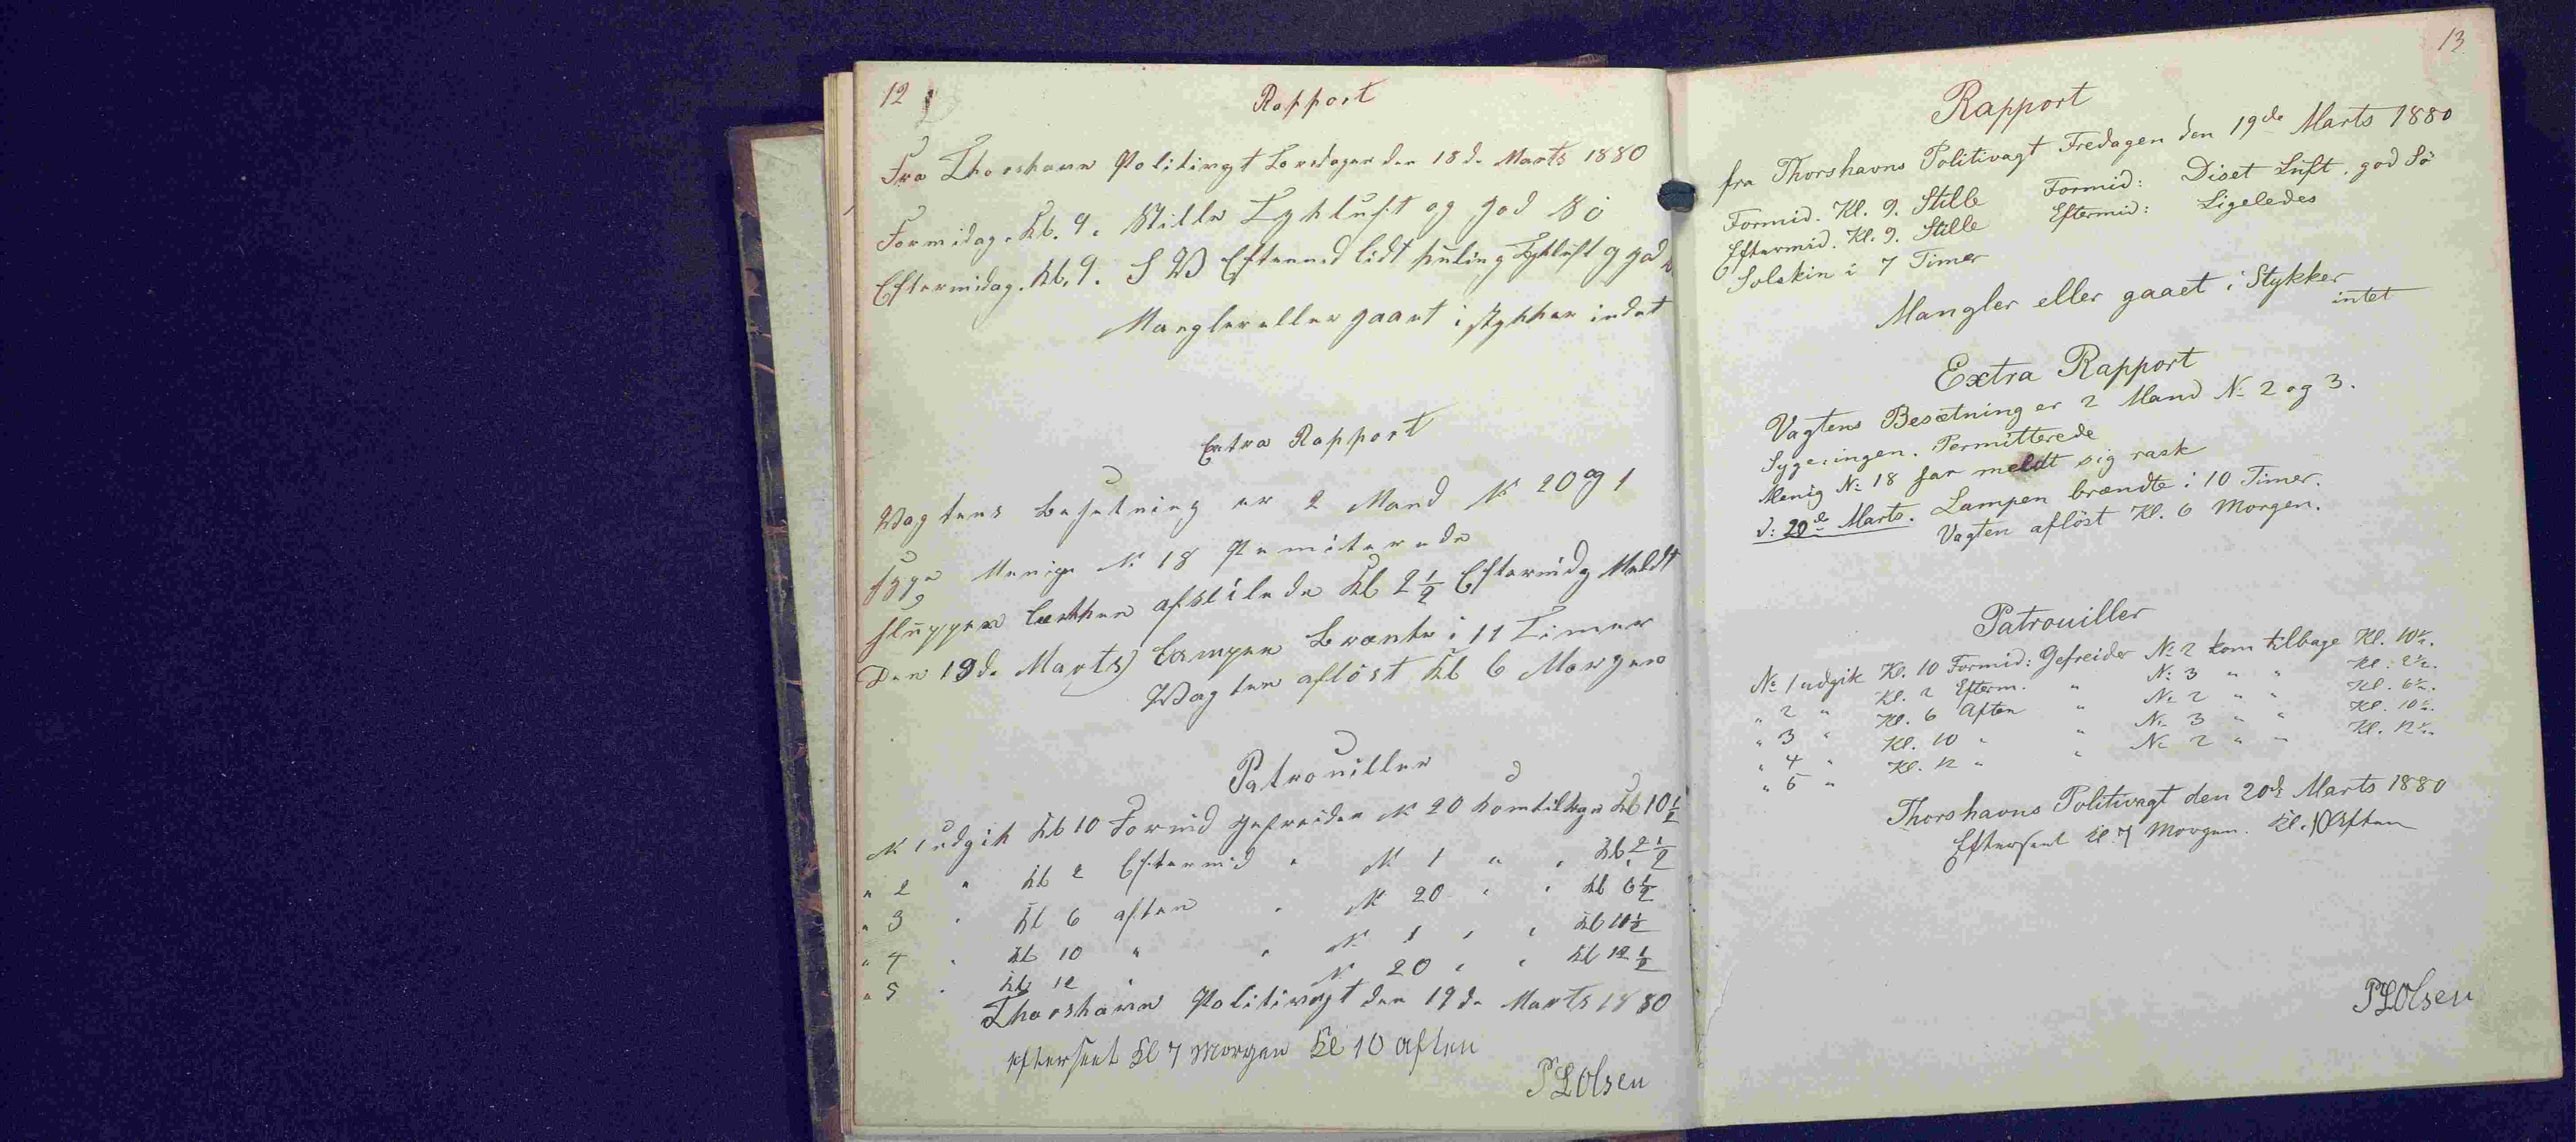 12
Rapport
Fra Thorshavn Politivagt Torsdagen den 18de Marts 1880
Formidag. Kl. 9. Stille Tykluft og god Sö
Eftermidag. Kl. 9. S W Eftermd lidt kuling Tykluft g god
Mangler eller gaaet i stykker indet
Extra Rapport
Wagtens besetning er 2 Mand N 20 og 1
syge Menig N. 18 Permiterede
sluppen afseilede Kl 2½ Eftermidg Meldt
Den 19de Marts) Lampen Brænte i 11 Timer
Wagten aflöst Kl 6 Morgen
Patrouiller
N 1 udgik Kl 10 Formd gefreider N 20 kom tilbage Kl 10½
" 2 " Kl 2 Eftermd " N 1 " " Kl 2½
" 3 " Kl 6 aften " N 20 " " Kl 6½
" 4 " Kl 10 " " N 1 " " Kl 10½
" 5 " Kl 12 " N 20 " " Kl 12½
Thorshavn Politivagt den 19de Marts 1880
efterseet Kl 7 Morgen Kl 10 aften
P L Olsen
13
Rapport
fra Thorshavns Politivagt Fredagen den 19de Marts 1880
Formid. Kl. 9. Stille Formid: Diset Luft, god Sö
Eftermid. Kl. 9. Stille Eftermid: Ligeledes
Solskin i 7 Timer
Mangler eller gaaet i Stykker
intet
Extra Rapport
Vagtens Besætning er 2 Mand No 2 og 3.
Syge: ingen. Permitterede
Menig No 18 har meldt sig rask
d: 20de Marts. Lampen brændte i 10 Timer.
Vagten aflöst Kl. 6 Morgen.
Patrouiller
No 1 udgik Kl. 10 Formid: Gefreider No 2 kom tilbage Kl. 10½.
" 2 " Kl. 2 Efterm. " No 3 " " Kl. 2½.
" 3 " Kl. 6 Aften " No 2 " " Kl. 6½.
" 4 " Kl. 10 " " No 3 " " Kl. 10½.
" 5 " Kl. 12 " " No 2 " " Kl. 12½.
Thorshavns Politivagt den 20de Marts 1880
Efterseet Kl. 7 Morgen. Kl. 10 Aften
P L Olsen